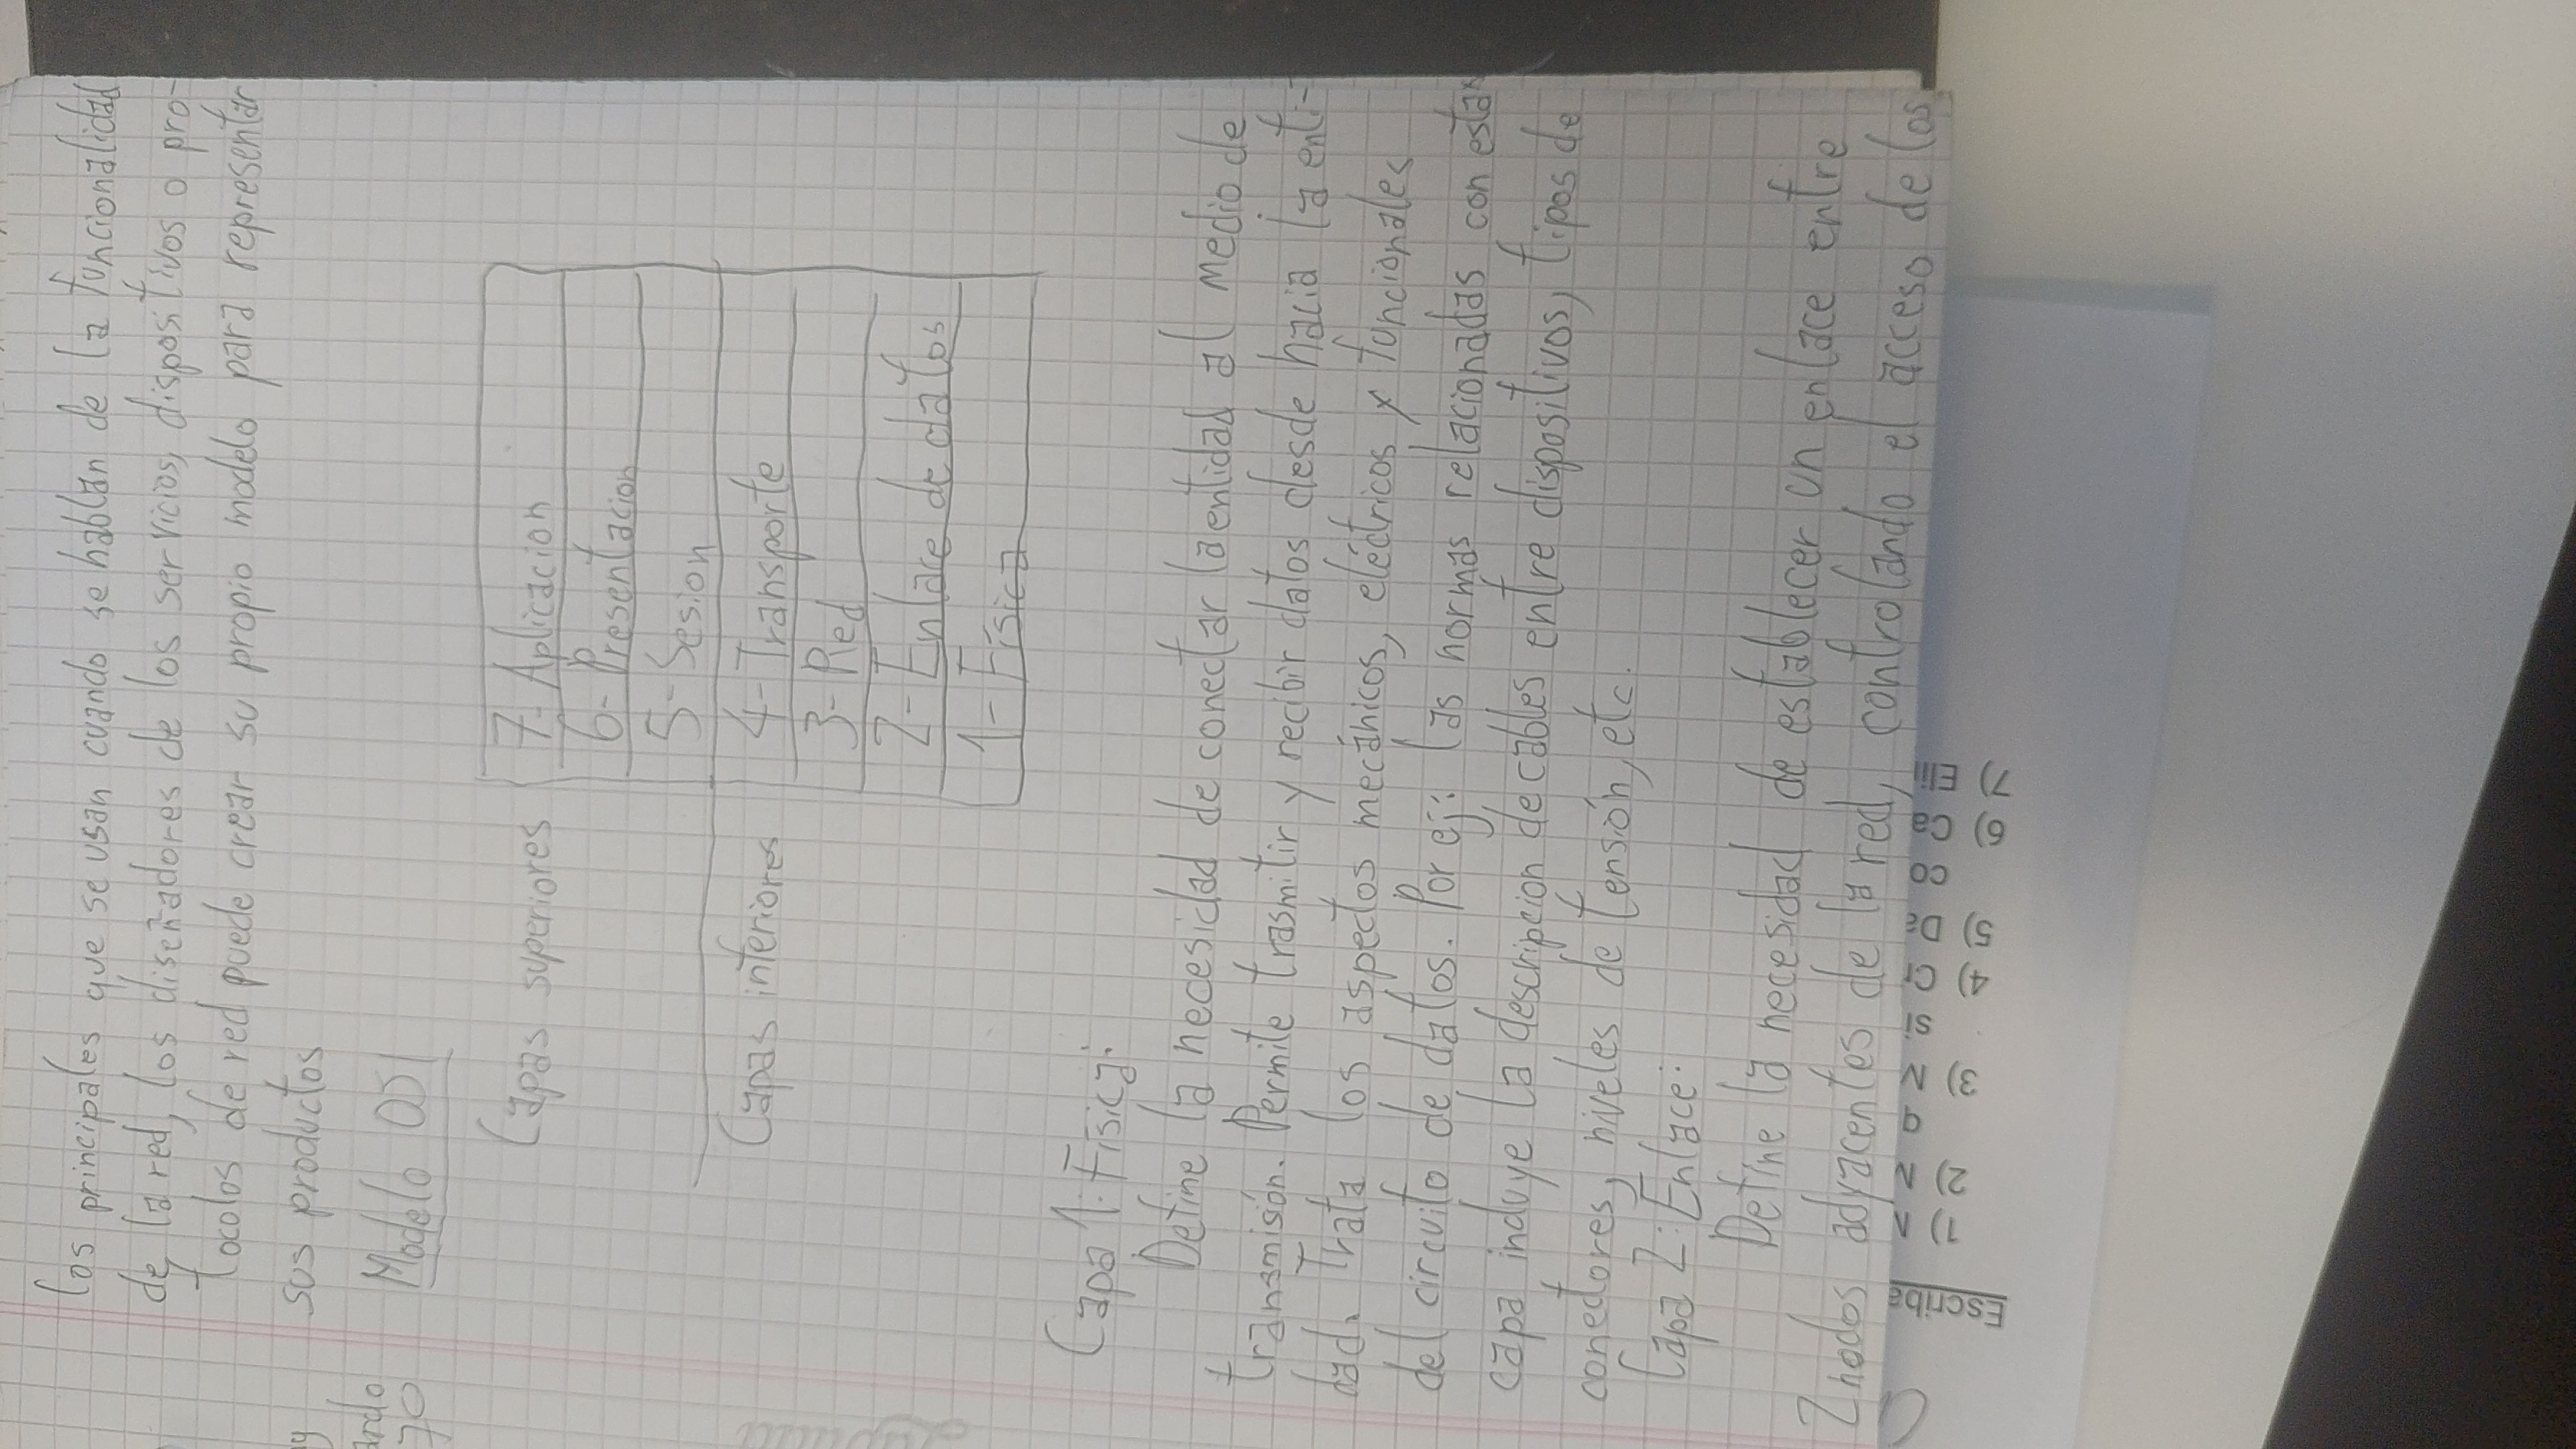 los principales que se usan cuando se hablan de la funcionalidad
de la red, los diseñadores de los servicios, dispositivos o pro-
tocolos de red puede crear su propio modelo para representar
sus productos
Modelo OSI
Capas superiores
7- Aplicacion
6- Presentacion
5- Sesion
Capas inferiores
4- Transporte
3- Red
2- Enlace de datos
1- Física
Capa 1: Física:
Define la necesidad de conectar la entidad al medio de
transmisión. Permite trasmitir y recibir datos desde hacia la enti-
dad. Trata los aspectos mecánicos, eléctricos y funcionales
del circuito de datos. Por ej: las normas relacionadas con esta
capa incluye la descripcion de cables entre dispositivos, tipos de
conectores, niveles de tensión, etc.
Capa 2: Enlace:
Define la necesidad de establecer un enlace entre
2 nodos adyacentes de la red, controlando el acceso de los
Escriba
1)
2)
3)
4)
5)
6)
7)